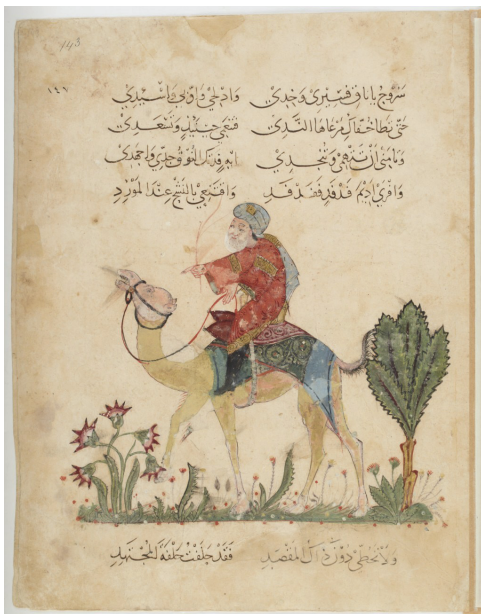 143
سروج يا ناق فسيري وخدي وادلجي واوبي واسئدي
حتى تطا خفاك مرعاها الندي فتنعمي حينئذ وتسعدي
وتامني ان تتهمي وتنجدي ايه فدتك النوق جدي واجهدي
وافري اديم فدفد ففدفد واقتنعي بالنشح عند المورد
ولا تحطي دون ذاك المقصد فقد حلفت حلفة المجتهد